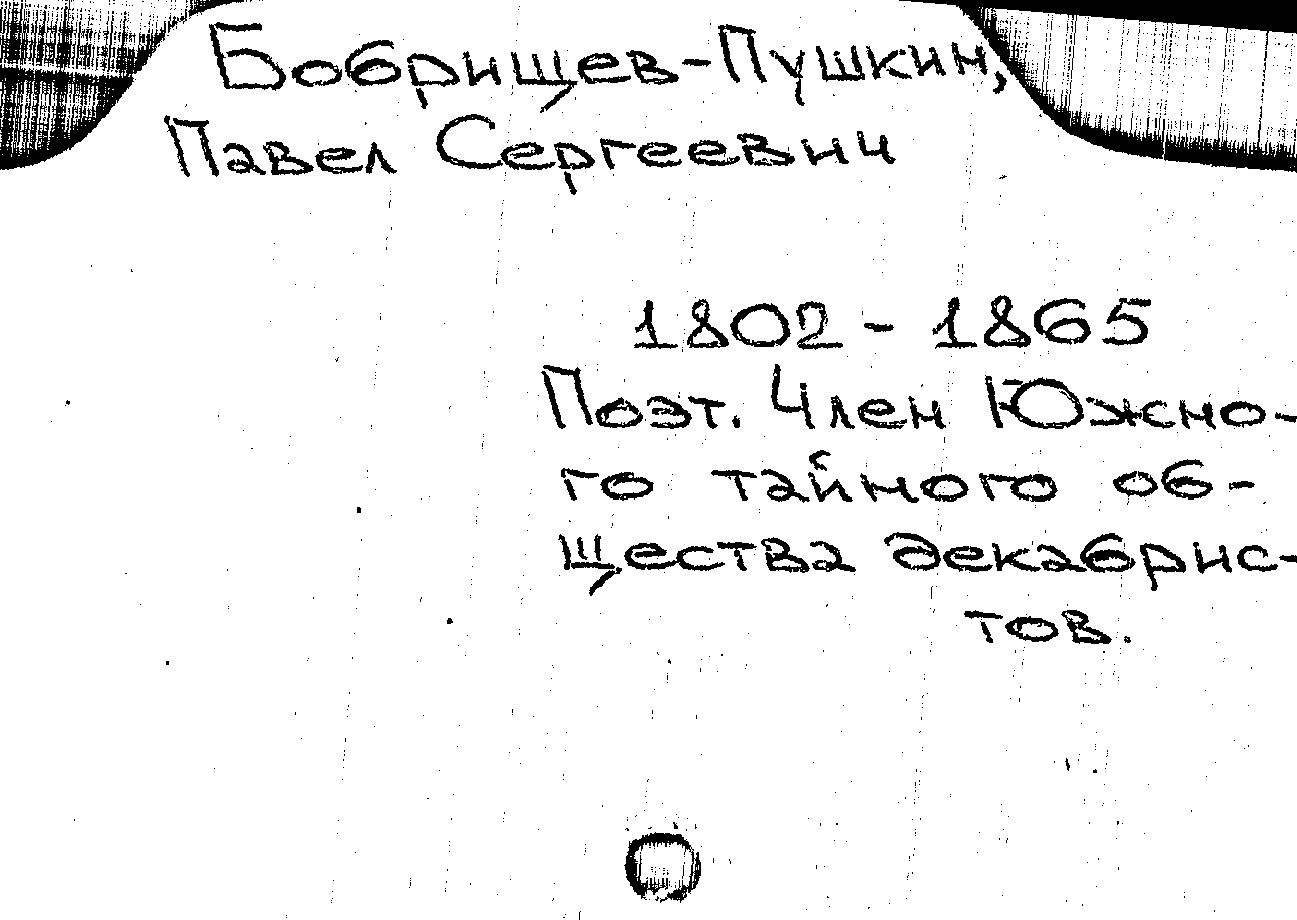 Бобрищев-Пушкин,
Павел Сергеевич
1802 - 1865
Поэт. Член Южно-
го тайного об-
щества декабрис-
тов.